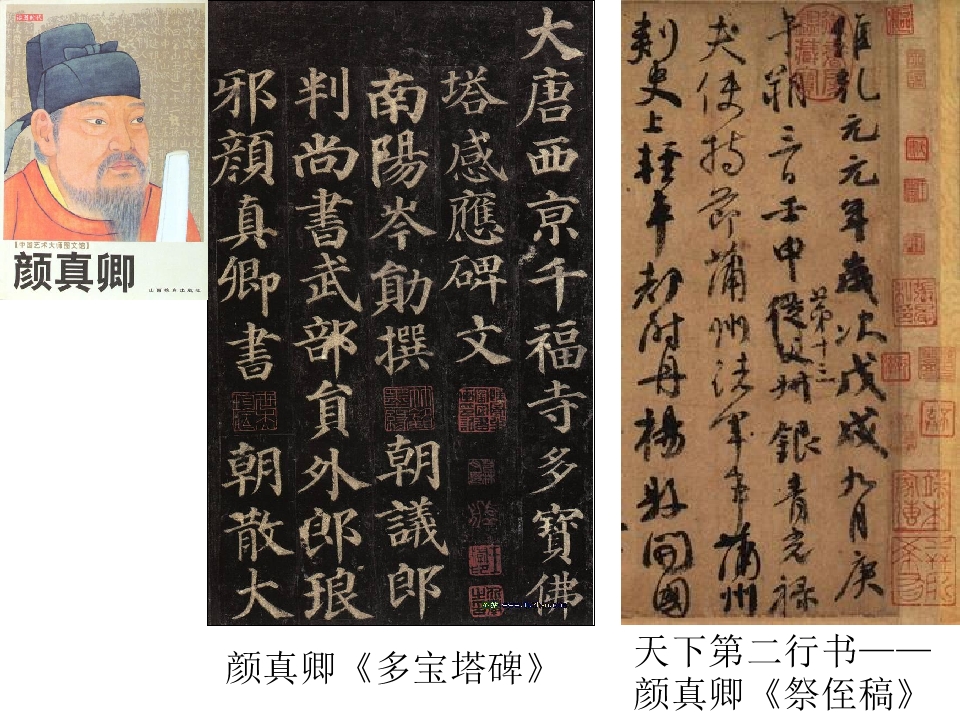 【中国艺术大师图文馆】
颜真卿
大唐西京千福寺多寶佛
塔感應碑文
南陽岑勛撰 朝議郎
判尚書武部員外郎琅
邪顏真卿書 朝散大
維乾元元年歲次戊戌九月庚
午朔三日壬申第十三從父銀青光祿
夫使持節蒲州諸軍事蒲州
刺史上輕車都尉丹楊縣開國
颜真卿《多宝塔碑》
天下第二行书——
颜真卿《祭侄稿》